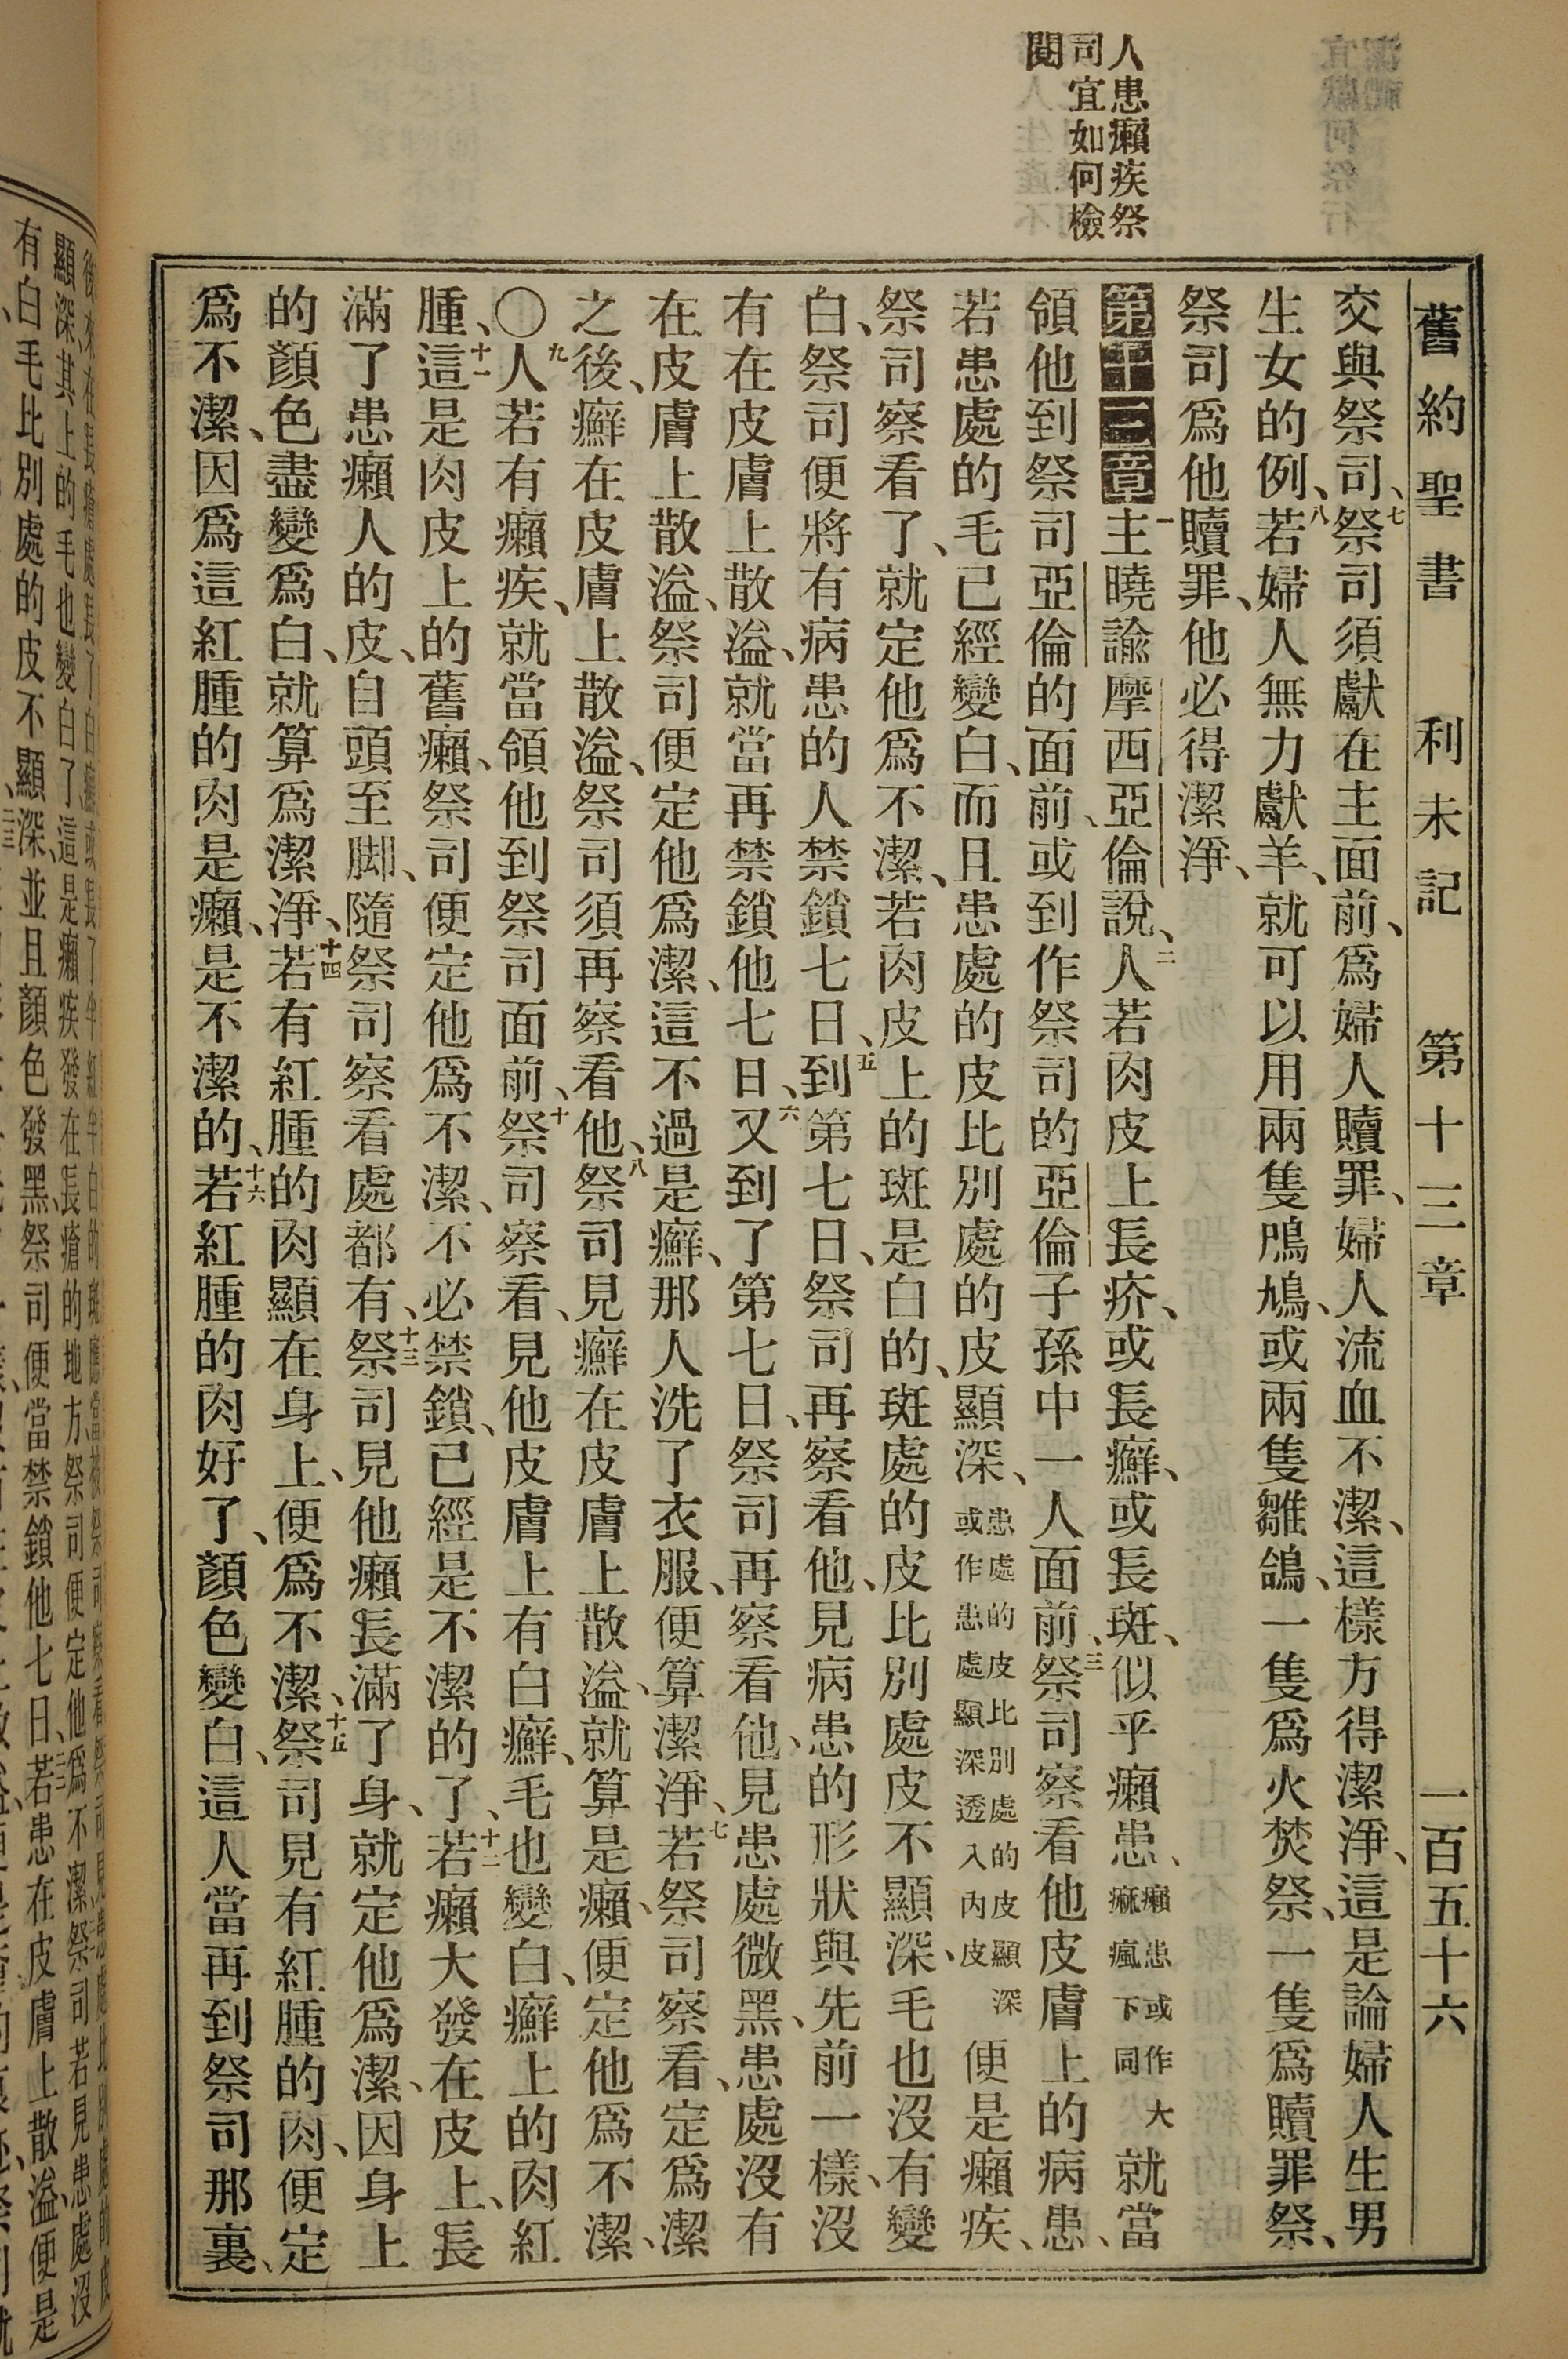 人患癩疾祭
司宜如何檢
閱
舊約聖書 利未記 第十三章 一百五十六
交與祭司、七祭司須獻在主面前、爲婦人贖罪、婦人流血不潔、這樣方得潔淨、這是論婦人生男
生女的例、八若婦人無力獻羊、就可以用兩隻鳲鳩、或兩隻雛鴿、一隻爲火焚祭、一隻爲贖罪祭、
祭司爲他贖罪、他必得潔淨、
第十三章一主曉諭摩西亞倫說、二人若肉皮上長疥、或長癬、或長斑、似乎癩患、癩患或作大痲瘋下同就當
領他到祭司亞倫的面前、或到作祭司的亞倫子孫中一人面前、三祭司察看他皮膚上的病患、
若患處的毛已經變白、而且患處的皮比別處的皮顯深、患處的皮比別處的皮顯深或作患處顯深透入內皮便是癩疾、
祭司察看了、就定他爲不潔、若肉皮上的斑是白的、斑處的皮比別處皮不顯深、毛也沒有變
白、祭司便將有病患的人禁鎖七日、五到第七日、祭司再察看他、見病患的形狀與先前一樣、沒
有在皮膚上散溢、就當再禁鎖他七日、六又到了第七日、祭司再察看他、見患處微黑、患處沒有
在皮膚上散溢、祭司便定他爲潔、這不過是癬、那人洗了衣服、便算潔淨、七若祭司察看、定爲潔
之後、癬在皮膚上散溢、祭司須再察看他、八祭司見癬在皮膚上散溢、就算是癩、便定他爲不潔、
〇九人若有癩疾、就當領他到祭司面前、十祭司察看、見他皮膚上有白癬、毛也變白、癬上的肉紅
腫、十一這是肉皮上的舊癩、祭司便定他爲不潔、不必禁鎖、已經是不潔的了、十二若癩大發在皮上、長
滿了患癩人的皮、自頭至脚、隨祭司察看處都有、十三祭司見他癩長滿了身、就定他爲潔、因身上
的顏色盡變爲白、就算爲潔淨、十四若有紅腫的肉顯在身上、便爲不潔、十五祭司見有紅腫的肉、便定
爲不潔、因爲這紅腫的肉是癩、是不潔的、十六若紅腫的肉好了、顏色變白、這人當再到祭司那裏、
顯深其上的毛也變白了、這是癩疾發在長瘡的地方、祭司便定他爲不潔、祭司若見患處沒
有白毛、比別處的皮不顯深、並且顏色發黑、祭司便當禁鎖他七日、若患在皮膚上散溢、便是